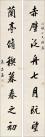 赤壁泛舟七月既望
蘭亭修禊暮春之初